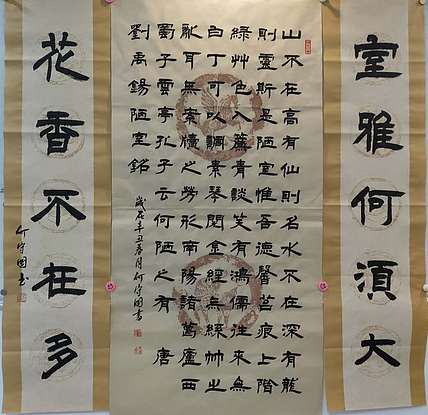 室雅何須大
山不在高有仙則名水不在深有龍
則靈斯是陋室惟吾德馨苔痕上階
綠艸色入簾青談笑有鴻儒往來無
白丁可以調素琴閱金經無絲竹之
亂耳無案牘之勞形南陽諸葛廬西
蜀子雲亭孔子云何陋之有 唐
劉禹錫陋室銘
歲在辛丑春月何守國書
花香不在多
何守國書